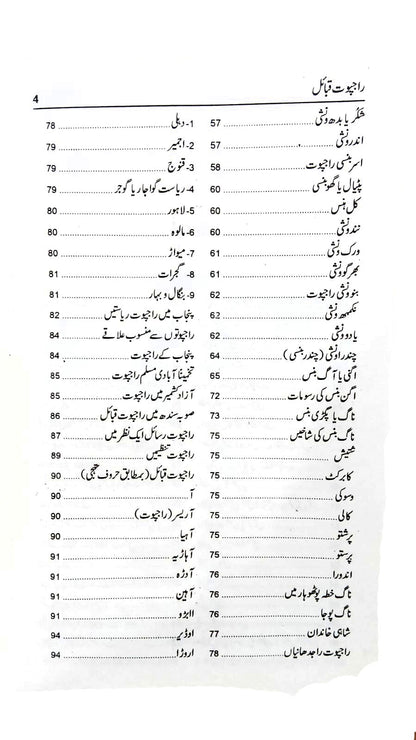 راجپوت قبائل
4
شکر یا بدھ ونشی 57
اندرونشی 57
اسر بنسی راجپوت 58
پٹیال یا گھونسی 60
کل بنس 60
نندونشی 60
ورک ونشی 61
بھرگو ونشی 61
بنو ونشی راجپوت 62
نکمبھ ونشی 62
یادو ونشی 62
چندراونشی (چندر بنسی) 64
اگنی یا آگ بنس 65
اگن بنس کی رسومات 72
ناگ یا پکڑی بنس 73
ناگ بنس کی شاخیں 74
شیش 75
کابرکٹ 75
وسوکی 75
کالی 75
پرشتو 75
پرستو 75
اندورا 76
ناگ خطہ پوٹھوہار میں 76
ناگ پوجا 76
شاہی خاندان 77
راجپوت راجدھانیاں 78
1- دہلی 78
2- اجمیر 79
3- قنوج 79
4- ریاست گواجارا یا گوجر 79
5- لاہور 80
6- مالوہ 80
7- میواڑ 80
8- گجرات 81
9- بنگال و بہار 81
پنجاب میں راجپوت ریاستیں 82
راجپوتوں سے منسوب علاقے 84
پنجاب کے راجپوت 84
تخمیناً آبادی مسلم راجپوت 85
آزاد کشمیر میں راجپوت 85
صوبہ سندھ میں راجپوت قبائل 86
راجپوت رسائل ایک نظر میں 87
راجپوت تنظیمیں 89
راجپوت قبائل (بمطابق حروف تہجی) 90
آ 90
آریسر (راجپوت) 90
آہیا 90
آہاڑیہ 91
آوڑہ 91
آہین 91
اابڑو 91
اوڈیر 94
اروڑا 94